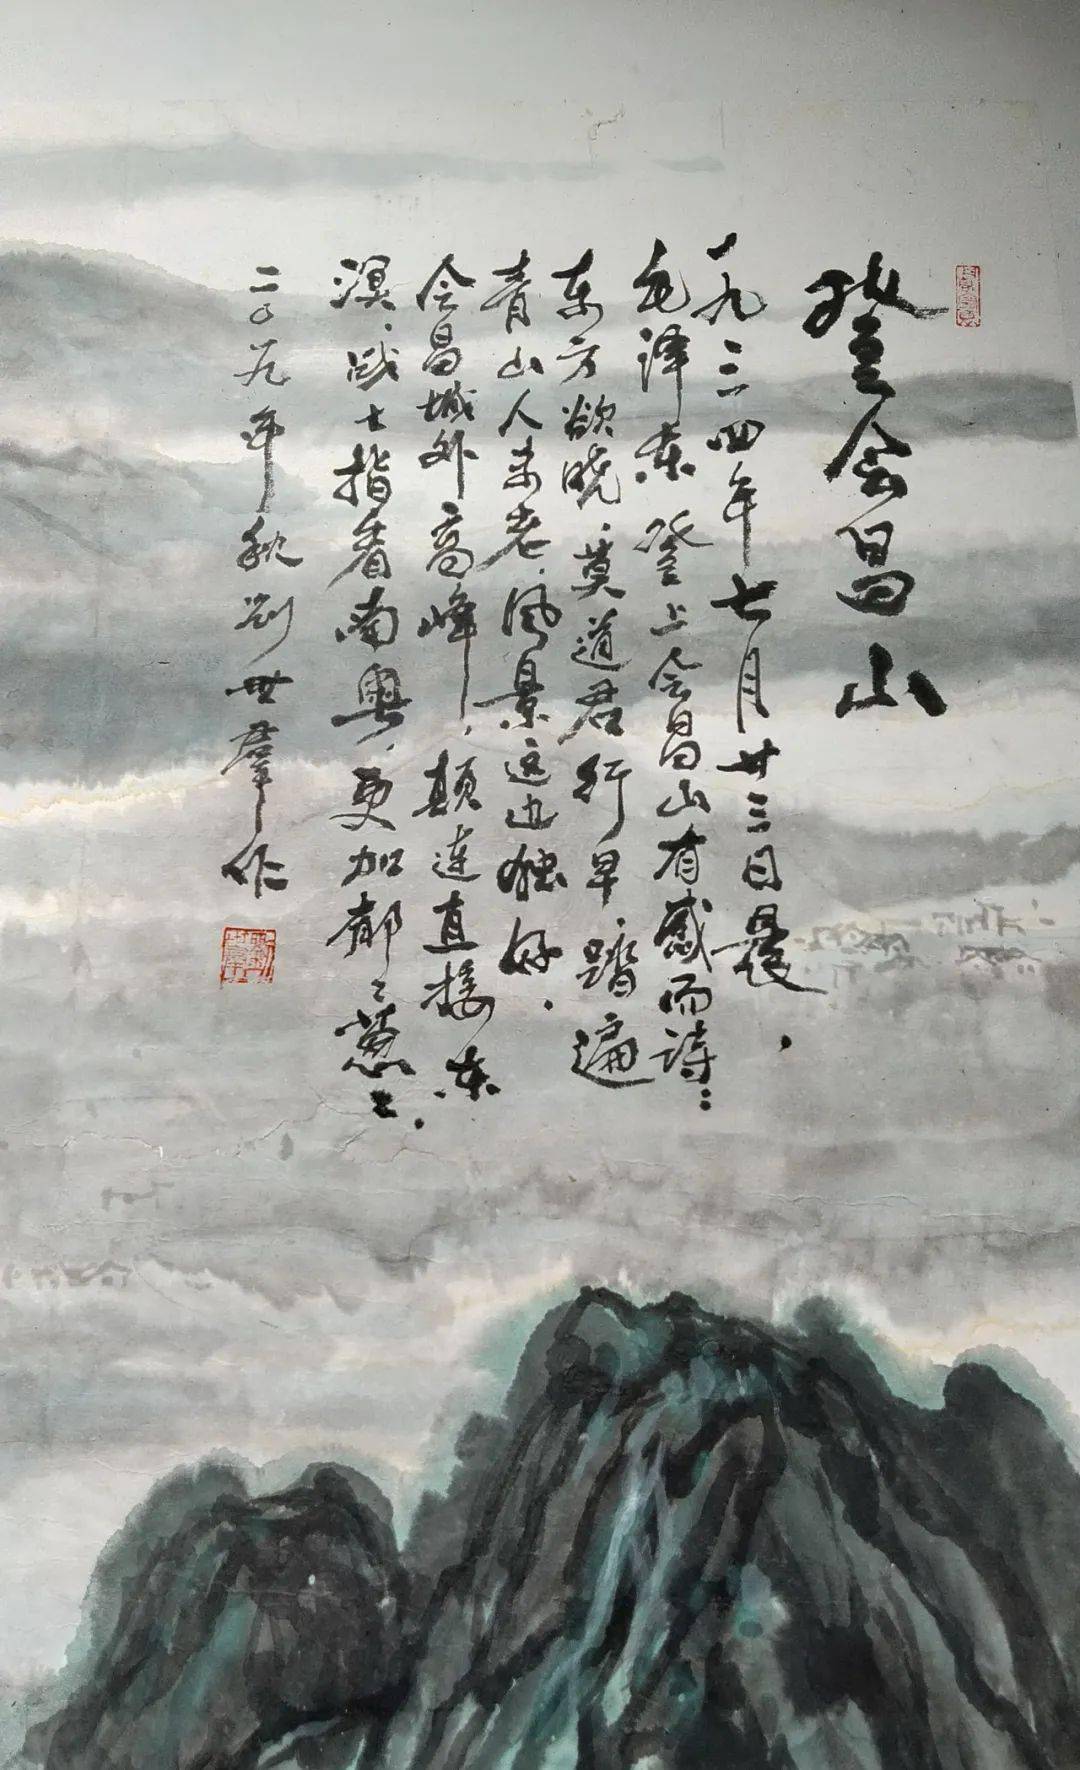 登会昌山
一九三四年七月廿三日晨，
毛泽东登上会昌山有感而诗：
东方欲晓，莫道君行早，踏遍
青山人未老，风景这边独好。
会昌城外高峰，颠连直接东
溟，战士指看南粤，更加郁々葱々。
二〇一九年秋刘世群作